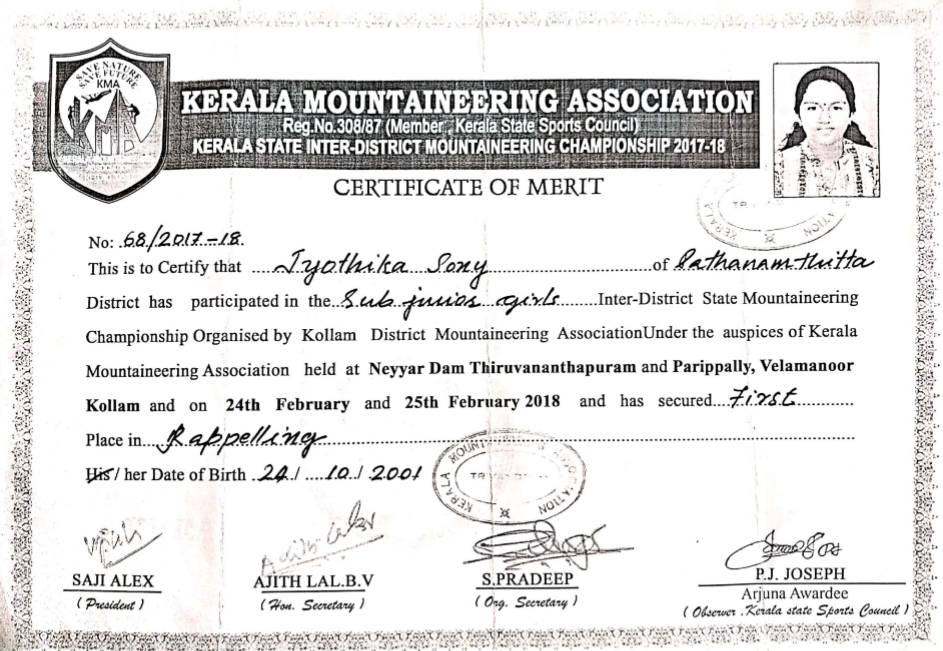 SAVE NATURE
SAVE FUTURE
KMA
KMA
KERALA MOUNTAINEERING ASSOCIATION
Reg.No.308/87 (Member, Kerala State Sports Council)
KERALA STATE INTER-DISTRICT MOUNTAINEERING CHAMPIONSHIP 2017-18
CERTIFICATE OF MERIT
No: 68/2017-18.
This is to Certify that Jyothika Sony of Pathanamthitta
District has participated in the Sub junior girls Inter-District State Mountaineering
Championship Organised by Kollam District Mountaineering AssociationUnder the auspices of Kerala
Mountaineering Association held at Neyyar Dam Thiruvananthapuram and Parippally, Velamanoor
Kollam and on 24th February and 25th February 2018 and has secured First
Place in Rappelling
His / her Date of Birth 24 / 10 / 2001
KERALA MOUNTAINEERING ASSOCIATION
SAJI ALEX
(President)
AJITH LAL.B.V
(Hon. Secretary)
S.PRADEEP
(Org. Secretary)
P.J. JOSEPH
Arjuna Awardee
(Observer .Kerala state Sports Council)